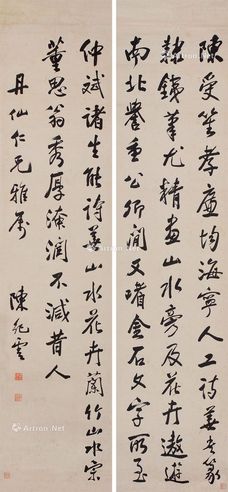 陳受笙孝廉均海寧人工詩善篆
隸鐵筆尤精畫山水旁及花卉遨遊
南北譽重公卿間又嗜金石文字所至
仲斌諸生能詩善山水花卉蘭竹山水宗
董思翁秀厚淹潤不減昔人
丹仙仁兄雅屬
陳雲
Artron.Net
Artron.Net